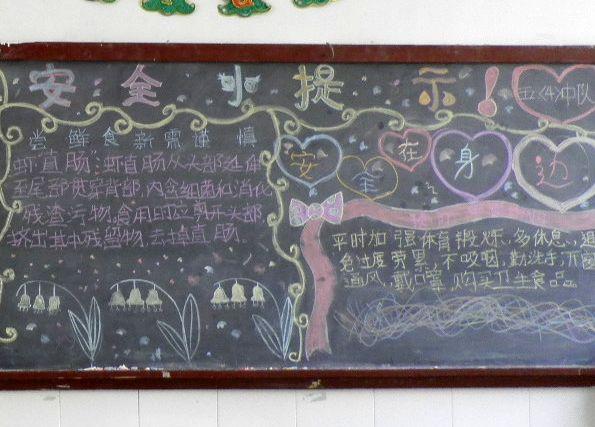 安全小提示!
尝鲜食新需谨慎
虾直肠:虾直肠从头部延伸
至尾部贯穿背部,内含细菌和消化
残渣污物,食用时应剪开头部,
挤出其中残留物,去掉直肠。
安全在身边
平时加强体育锻炼、多休息、避
免过度劳累,不吸烟,勤洗手,开窗
通风,戴口罩,购买卫生食品